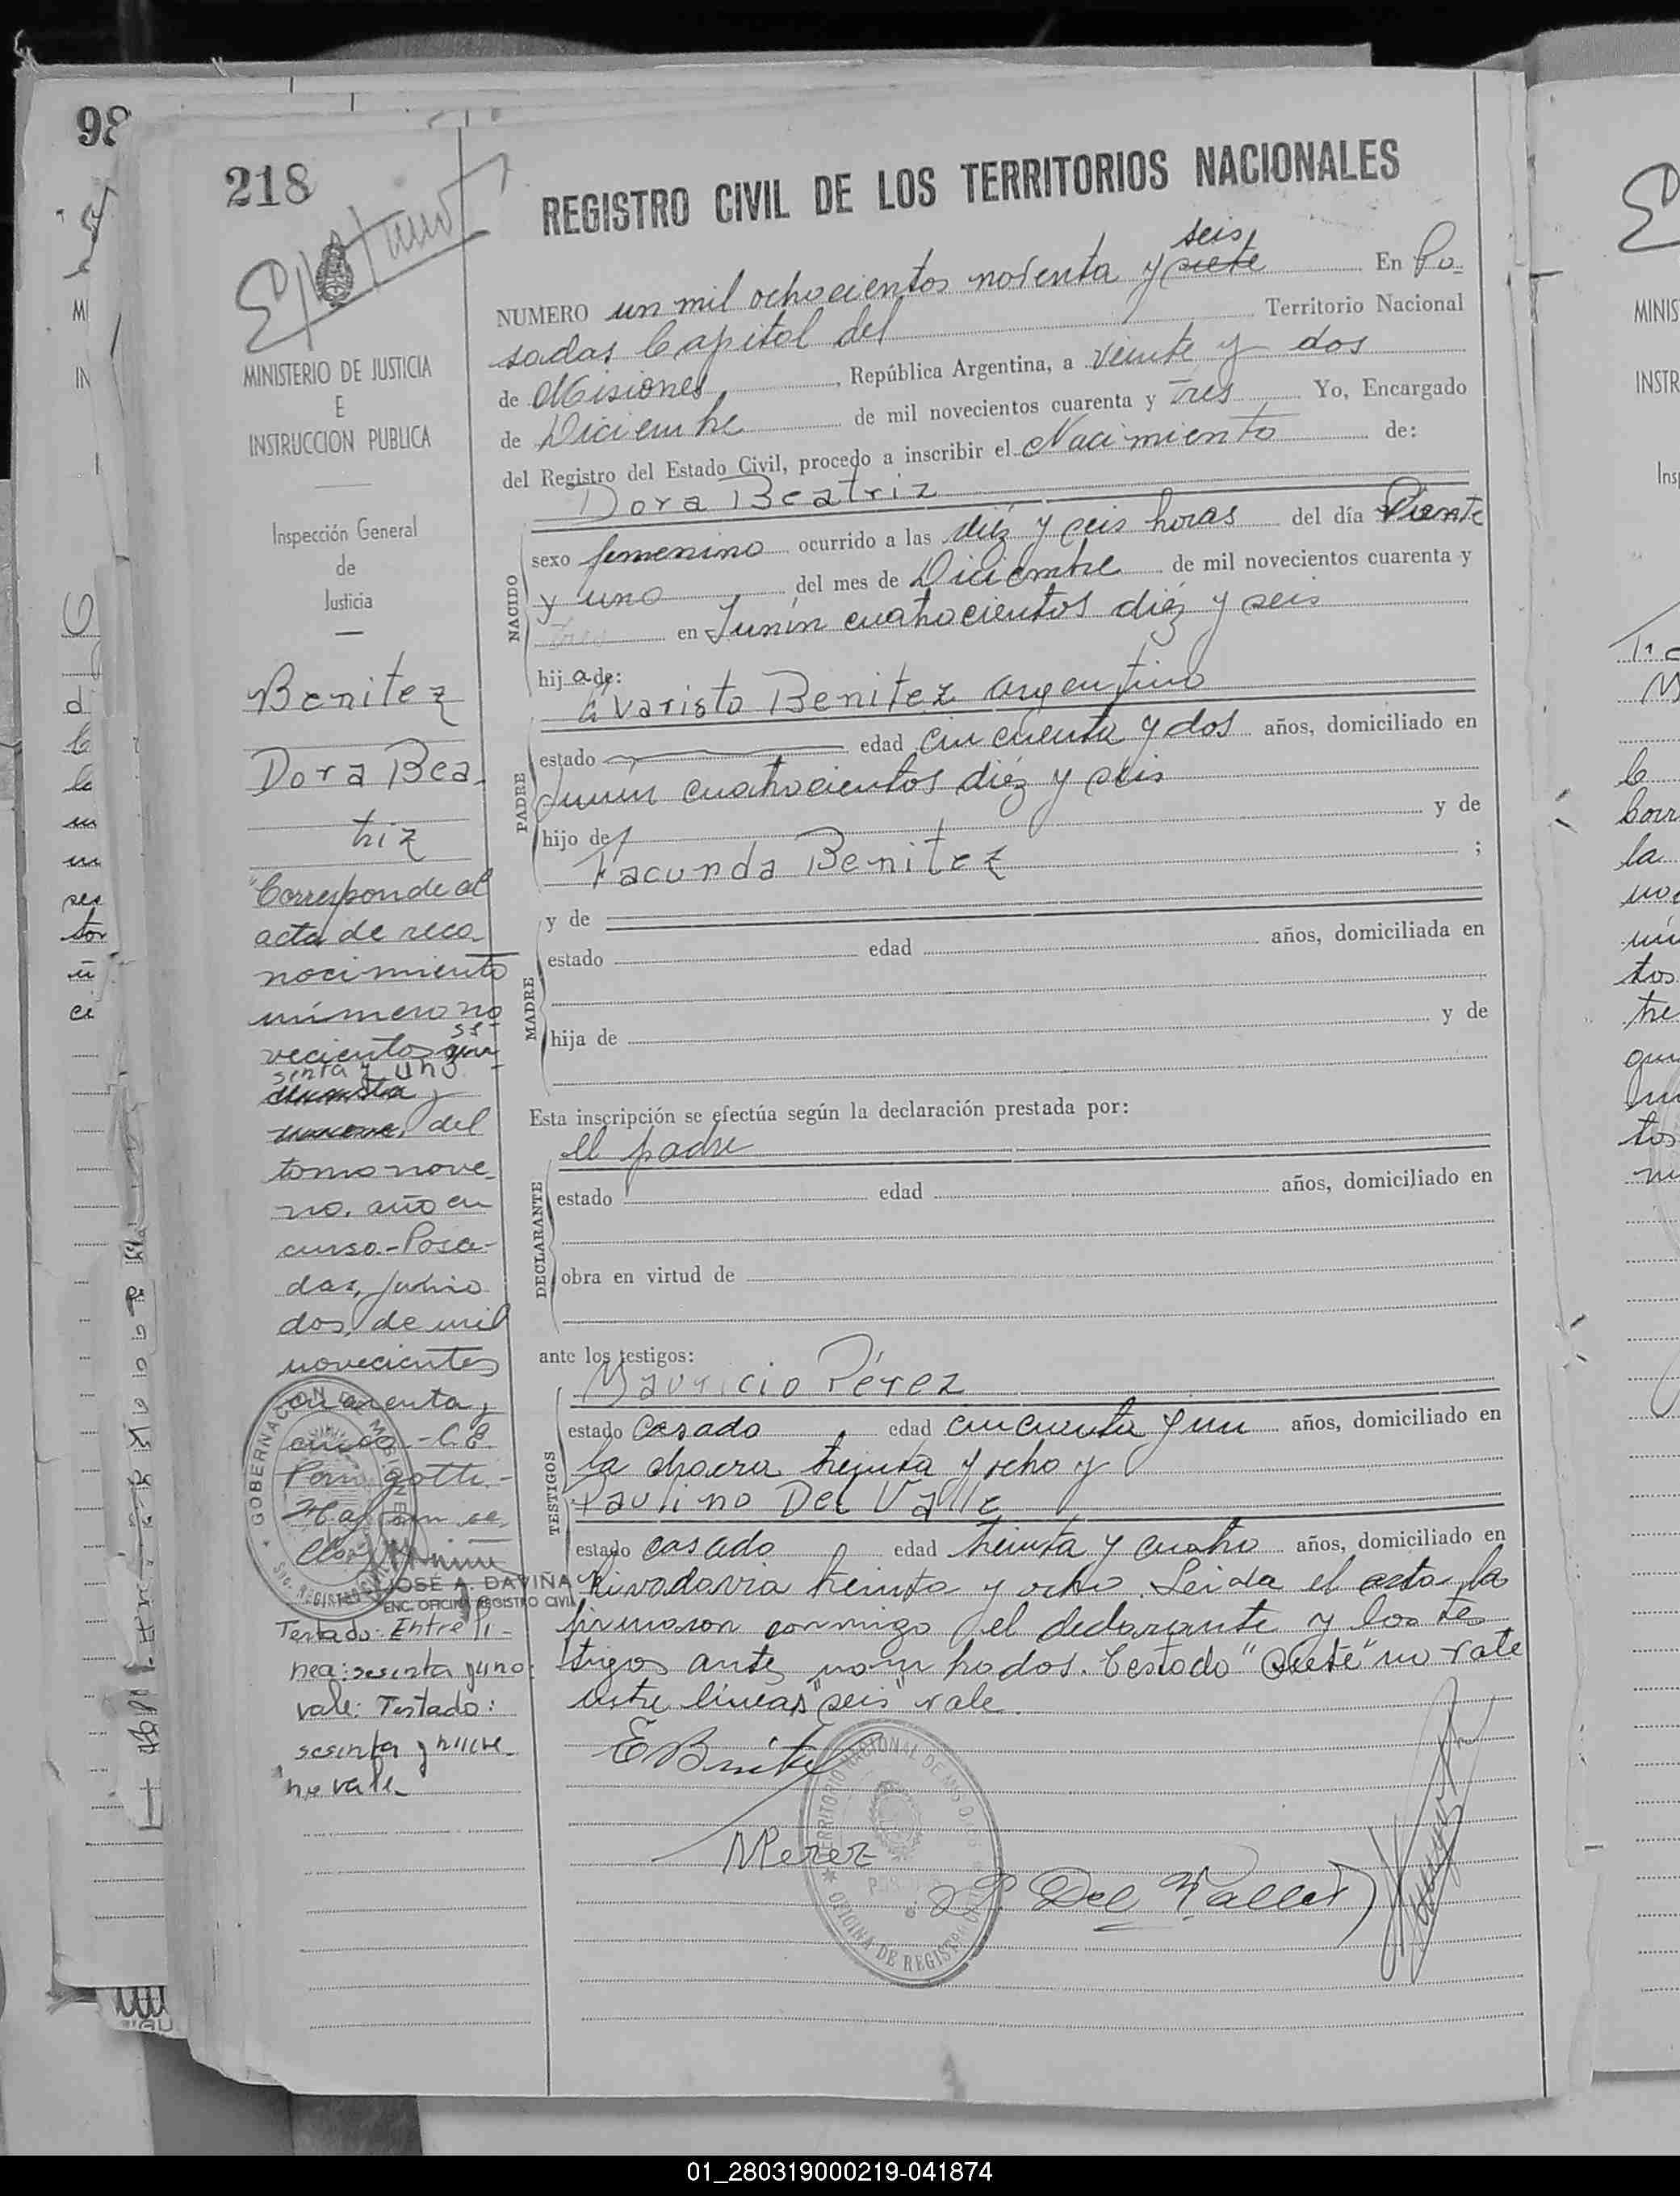 98
218
REGISTRO CIVIL DE LOS TERRITORIOS NACIONALES
MINISTERIO DE JUSTICIA
E
INSTRUCCION PUBLICA
Inspección General
de
Justicia
Benitez
Dora Bea-
triz
Corresponde al
acta de reco-
nocimiento
número no
vecientos se-
senta y uno
del
tomo nove-
no, año en
curso.-Posa-
das, junio
dos, de mil
novecientos
cuarenta y
GOBERNACION DE MISIONES
JOSÉ A. DAVIÑA
ENC. OFICINA REGISTRO CIVIL
Testado: Entre li-
nea: sesenta y uno:
vale: Testado:
sesenta y nueve
no vale
seis
NUMERO un mil ochocientos noventa y siete En Po-
sadas Capital del Territorio Nacional
de Misiones, República Argentina, a veinte y dos
de Diciembre de mil novecientos cuarenta y tres Yo, Encargado
del Registro del Estado Civil, procedo a inscribir el Nacimiento de:
Dora Beatriz
NACIDO
sexo femenino ocurrido a las diéz y seis horas del día Veinte
y uno del mes de Diciembre de mil novecientos cuarenta y
tres en Junín cuatrocientos diéz y seis
hij a de:
Evaristo Benitez argentino
PADRE
estado edad cincuenta y dos años, domiciliado en
Junín cuatrocientos diéz y seis
hijo de y de
Facunda Benitez ;
y de
MADRE
estado edad años, domiciliada en
hija de y de
Esta inscripción se efectúa según la declaración prestada por:
el padre
DECLARANTE
estado edad años, domiciliado en
obra en virtud de
ante los testigos:
Mauricio Pérez
TESTIGOS
estado casado edad cincuenta y un años, domiciliado en
la chacra treinta y ocho y
Paulino Del Valle
estado casado edad treinta y cuatro años, domiciliado en
Rivadavia treinta y ocho. Leida el acta, la
firmaron conmigo el declarante y los tes
tigos antes nombrados. Testado "siete" no vale
entre líneas "seis" vale.
E Benitez
M Perez
P. Del Valle
TERRITORIO NACIONAL DE MISIONES
OFICINA DE REGISTRO CIVIL
MINIS
INSTR
Insp
01_280319000219-041874